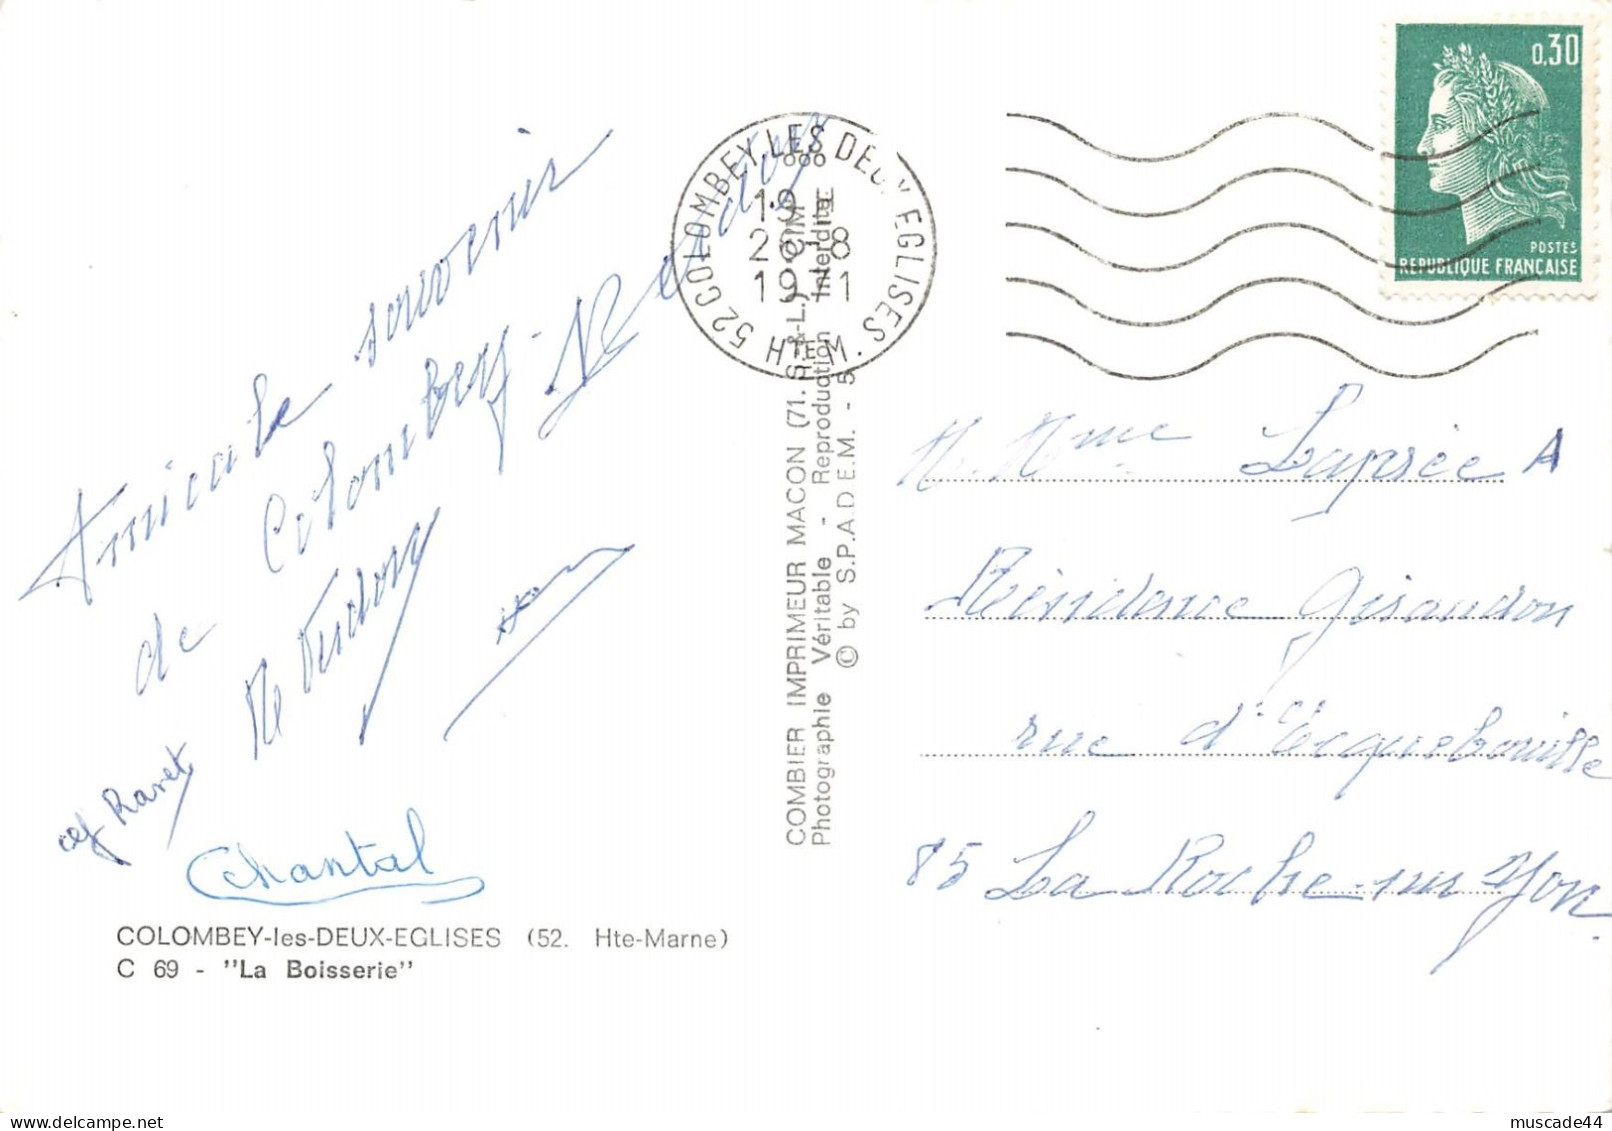 Amicale souvenir
de Colombey
Chantal
COLOMBEY-les-DEUX-EGLISES (52. Hte-Marne)
C 69 - "La Boisserie"
COMBIER IMPRIMEUR MACON (71. S.-&-L.) CIM
Photographie Véritable - Reproduction Interdite
© by S.P.A.D.E.M. - 5
52 COLOMBEY LES DEUX EGLISES Hte M.
19
1971
0,30
POSTES
REPUBLIQUE FRANCAISE
M. Mme Laprée A
Résidence Giraudon
rue d'Ecquebouille
85 La Roche-sur Yon
muscade44